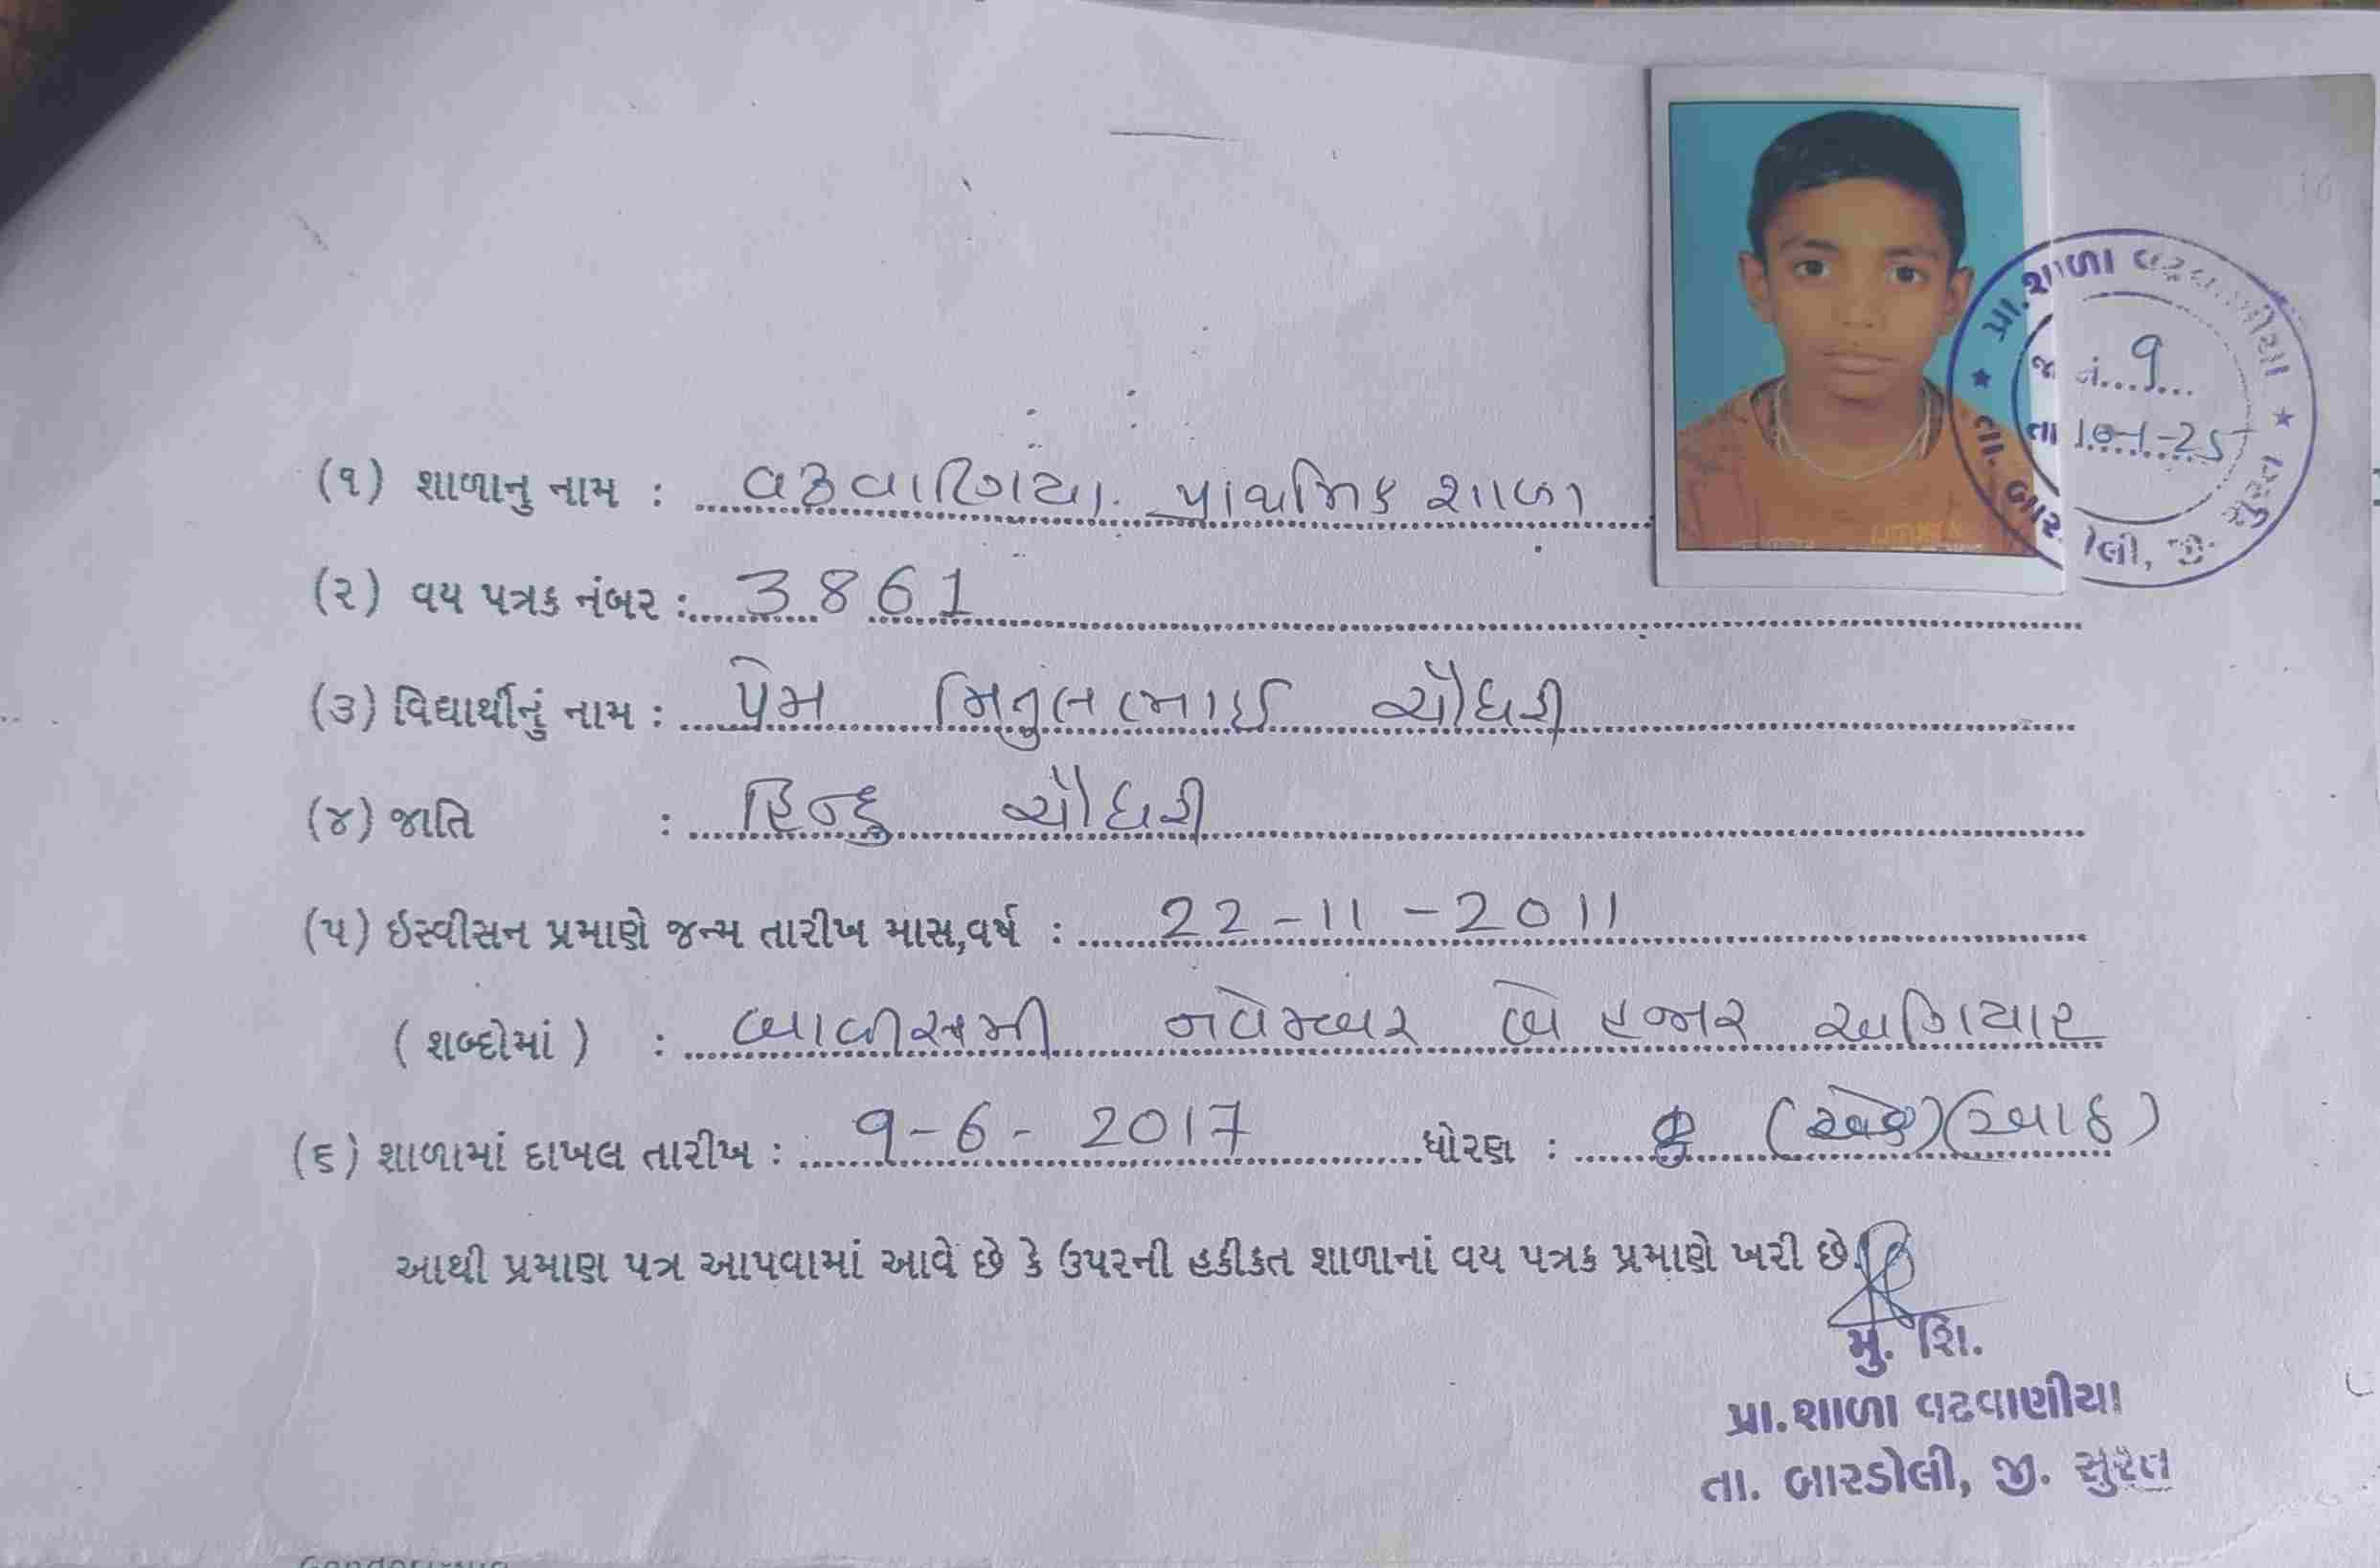 પ્રા.શાળા
જા નં. 9
તા 10-1-25
તા. બારડોલી, જી. સુરત
(૧) શાળાનુ નામ : વઢવાણિયા પ્રાથમિક શાળા
(૨) વય પત્રક નંબર : 3861
(૩) વિદ્યાર્થીનું નામ : પ્રેમ મિતુલભાઈ ચૌધરી
(૪) જાતિ : હિન્દુ ચૌધરી
(૫) ઇસ્વીસન પ્રમાણે જન્મ તારીખ માસ,વર્ષ : 22-11-2011
( શબ્દોમાં ) : બાવીસમી નવેમ્બર બે હજાર અગિયાર
(૬) શાળામાં દાખલ તારીખ : 9-6-2017 ધોરણ : 8 (આઠ)
આથી પ્રમાણ પત્ર આપવામાં આવે છે કે ઉપરની હકીકત શાળાનાં વય પત્રક પ્રમાણે ખરી છે.
મુ. શિ.
પ્રા.શાળા વઢવાણીયા
તા. બારડોલી, જી. સુરત